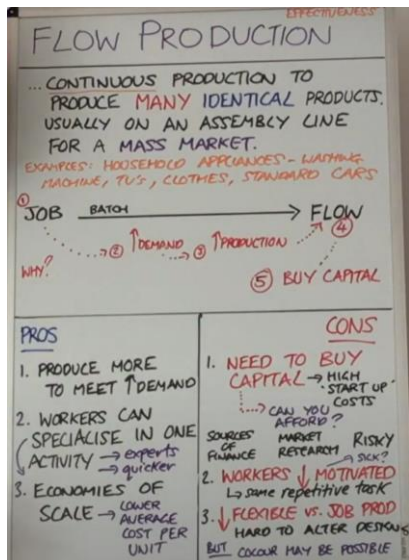 EFFECTIVENESS
FLOW PRODUCTION
...CONTINUOUS PRODUCTION TO
PRODUCE MANY IDENTICAL PRODUCTS.
USUALLY ON AN ASSEMBLY LINE
FOR A MASS MARKET.
EXAMPLES: HOUSEHOLD APPLIANCES - WASHING
MACHINE, TU'S, CLOTHES, STANDARD CARS
① JOB BATCH → FLOW ④
WHY? ② ↑DEMAND ③ ↑PRODUCTION
⑤ BUY CAPITAL
PROS
1. PRODUCE MORE
TO MEET ↑DEMAND
2. WORKERS CAN
SPECIALISE IN ONE
ACTIVITY → experts
→ quicker
3. ECONOMIES OF
SCALE → LOWER
AVERAGE
COST PER
UNIT
CONS
1. NEED TO BUY
CAPITAL → HIGH
START UP
COSTS
→ CAN YOU
AFFORD?
SOURCES OF FINANCE
MARKET RESEARCH
RISKY
SICK?
2. WORKERS ↓ MOTIVATED
↳ same repetitive task
3. ↓ FLEXIBLE VS. JOB PROD
HARD TO ALTER DESIGN
BUT COLOUR MAY BE POSSIBLE